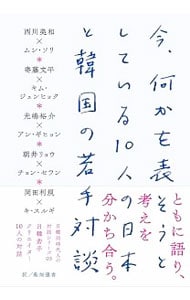 今、何かを表そうと
している10人の日本
と韓国の若手対談
ともに語り、
考えを
分かち合う。
西川美和
×
ムン・ソリ
*
寄藤文平
×
キム・
ジュンヒョク
*
光嶋裕介
×
アン・ギヒョン
*
朝井リョウ
×
チョン・セラン
*
岡田利規
×
キ・スルギ
クリエイター
10人の対話
訳/桑畑優香